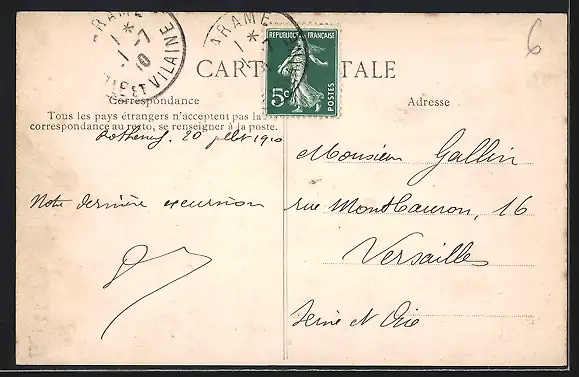 PARAMÉ
ILLE-ET-VILAINE
PARAMÉ
6
REPUBLIQUE FRANÇAISE
5c POSTES
CARTE POSTALE
Correspondance
Tous les pays étrangers n'acceptent pas la
correspondance au recto, se renseigner à la poste.
Adresse
Rothéneuf. 20 juillet 1910
Notre dernière excursion
Monsieur Gallin
rue Montbauron, 16
Versailles
Seine et Oise